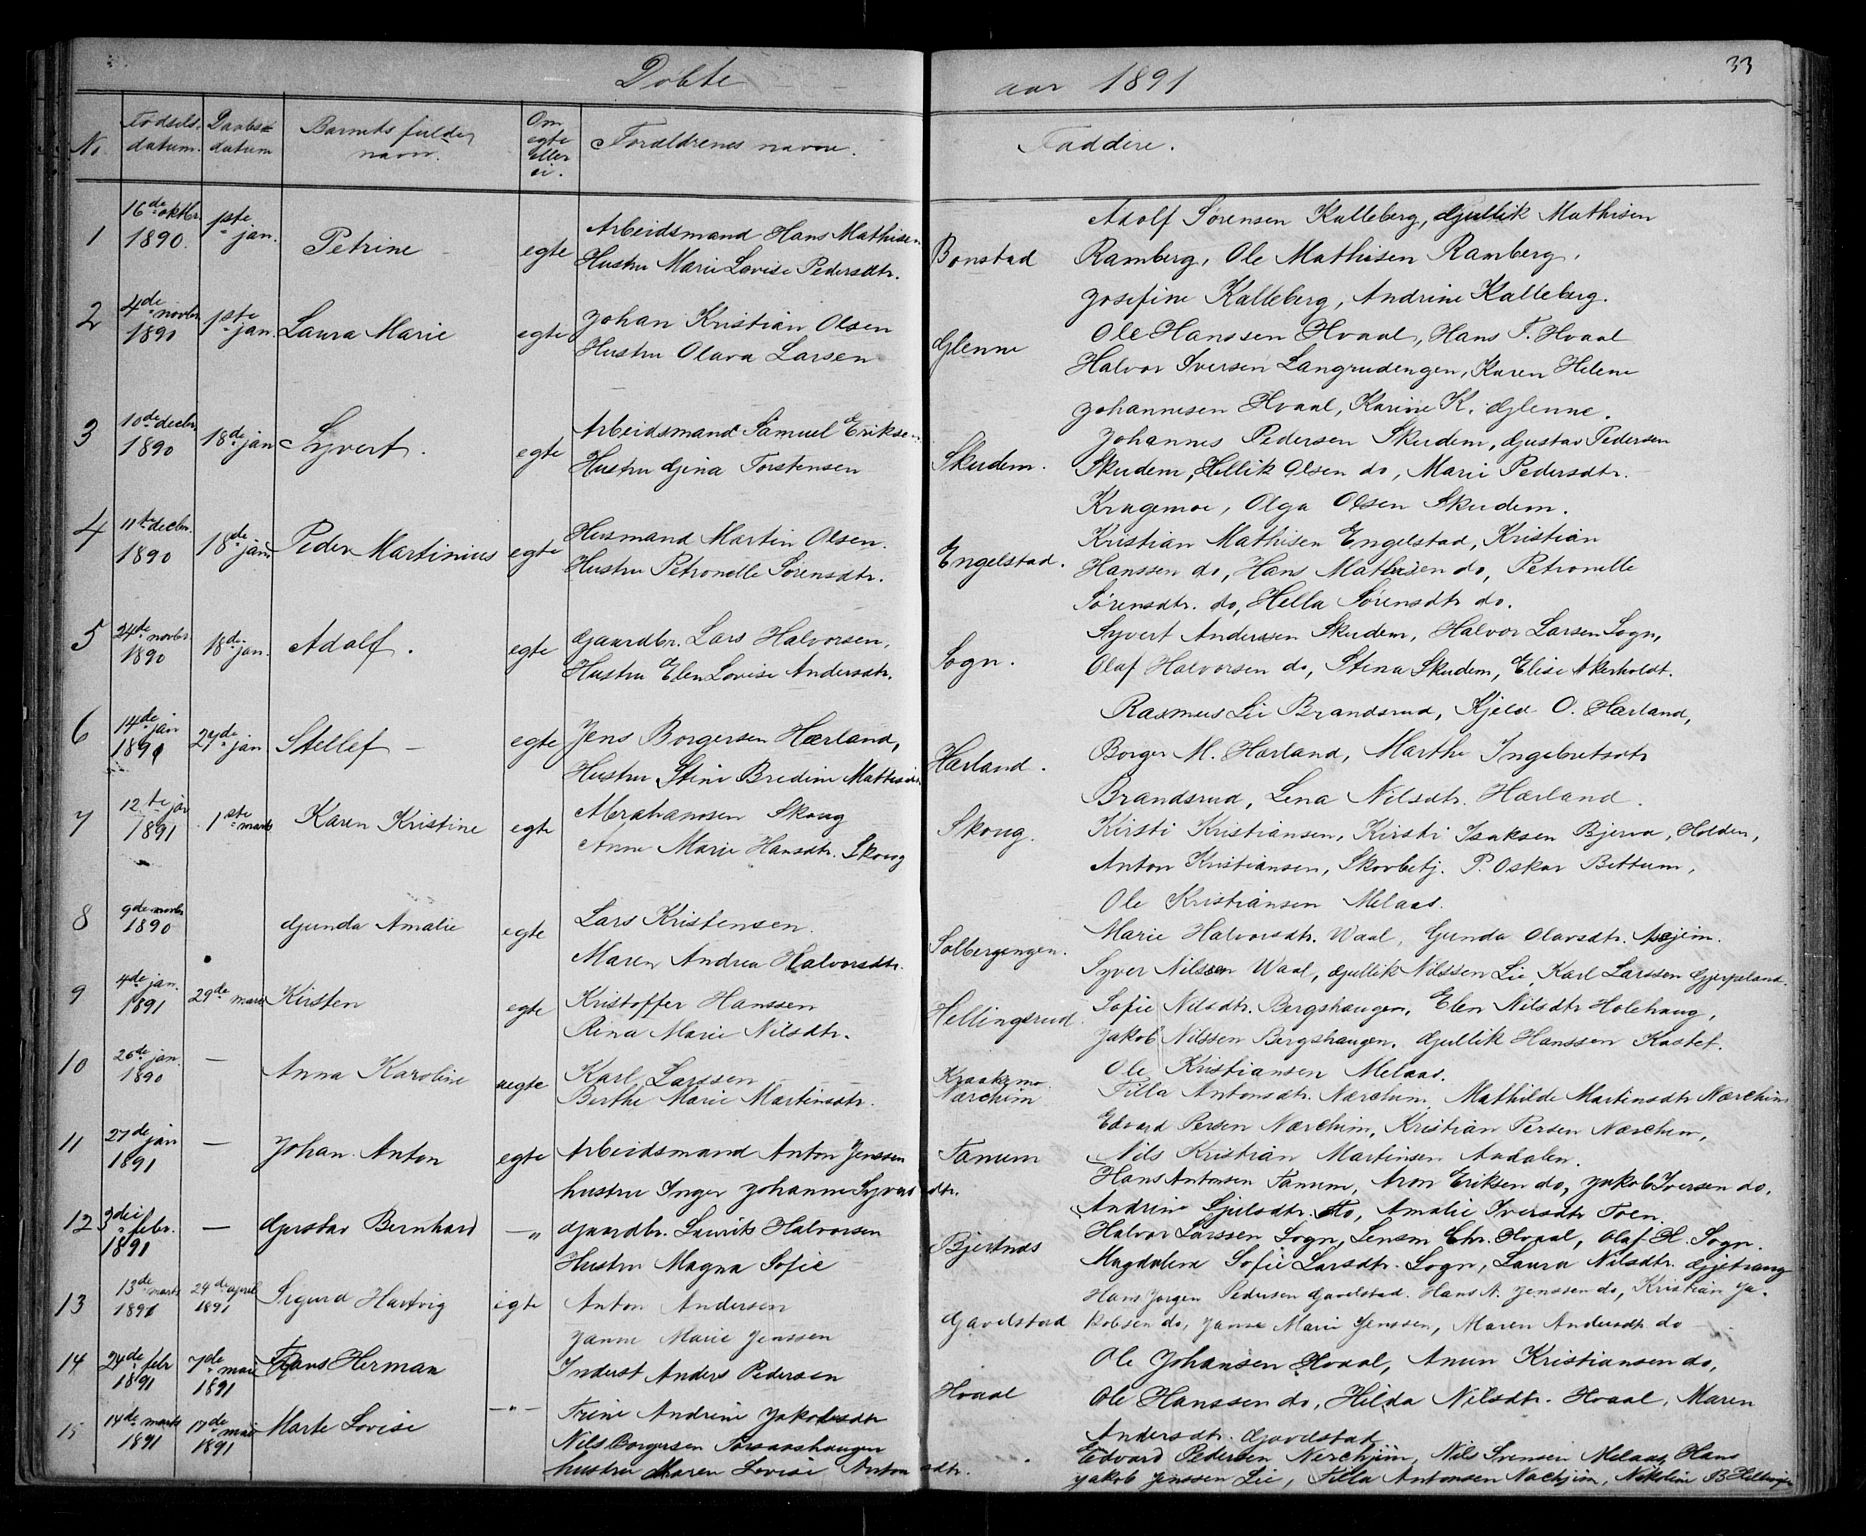 Døbte aar 1891 33
No. Fødsels datum. Daabs datum Barnets fulde navn. Om egte eller ei. Forældrenes navne. Faddere.
1 16de oktbr. 1890. 1ste jan. Petrine egte Arbeidsmand Hans Mathisen Hustru Marie Lovise Pedersdtr. Bonstad
Adolf Sørensen Kalleberg, Gjullik Mathisen
Ramberg, Ole Mathisen Ramberg,
Josefine Kalleberg, Andrine Kalleberg.
2 4de novbr. 1890 1ste jan. Laura Marie egte Johan Kristian Olsen Hustru Olava Larsen Glenne
Ole Hanssen Hvaal, Hans T. Hvaal
Halvor Iversen Langrudengen, Karen Helene
Johannesen Hvaal, Karine K. Glenne.
3 10de decbr. 1890 18de jan Syvert. egte Arbeidsmand Samuel Eriksen Hustru Gina Torstensen Skudem.
Johannes Pedersen Skudem, Gustav Pedersen
Skudem, Hellik Olsen do, Marie Pedersdtr.
Kragemoe, Olga Olsen Skudem.
4 11te decbr. 1890 18de jan. Peder Martinius egte Husmand Martin Olsen. Hustru Petronelle Sørensdtr. Engelstad.
Kristian Mathisen Engelstad, Kristian
Hanssen do, Hans Mathisen do, Petronelle
Sørensdtr. do, Hella Sørensdtr do.
5 24de novbr. 1890 18de jan. Adolf. egte Gaardbr. Lars Halvorsen, Hustru Elen Lovise Andersdtr. Sogn.
Syvert Anderssen Skudem, Halvor Larsen Sogn,
Olaf Halvorsen do, Stena Skudem, Elise Akerholdt.
6 14de jan 1891 27de jan Stellef egte Jens Borgersen Hærland, Hustru Stine Bredine Hærland.
Rasmus Lie Brandsrud, Kjeld O. Hærland,
Borger M. Hærland, Marthe Ingebretsdtr
Brandsrud, Lena Nilsdtr. Hærland.
7 12te jan 1891 1ste marts Karen Kristine egte Abrahamsen Skoug Anne Marie Hansdtr. Skoug Skoug.
Kirsti Kristiansen, Kirsti Isaksen Bjerva, Holden,
Anton Kristiansen, Skovbetj. P. Oskar Bettum,
Ole Kristiansen Melaas.
8 9de novbr 1890 Gunda Amalie egte Lars Kristensen. Maren Andrea Halvorsdtr. Solbergengen.
Marie Halvorsdtr. Waal, Gunda Olavsdtr.
Syver Nilssen Waal, Gjullik Nilssen Lie, Karl Larssen Gjerpeland.
9 4de jan. 1891 29de mars Kirsten egte Kristoffer Hanssen Rina Marie Nilsdtr. Hellingsrud
Sofie Nilsdtr. Bergshaugen, Elen Nilsdtr Holehaug,
Jakob Nilssen Bergshaugen, Gjullik Hanssen Kastet.
Ole Kristiansen Melaas.
10 26de jan. 1890 — Anna Karoline uegte Karl Larssen Berthe Marie Martinsdtr. Nærchim
Tilla Antonsdtr. Nærchim, Mathilde Martinsdtr Nærchim
Edvard Persen Nærchim, Kristian Persen Nærchim,
Nils Kristian Martinsen Aadalen.
11 27de jan 1891 — Johan Anton egte Arbeidsmand Anton Jenssen hustru Inger Johanne Syversdtr. Tanum
Hans Antonsen Tanum, Aron Eriksen do, Jakob Iversen do,
Andrine Gjulsdtr. do, Amalie Iversdtr Foen.
12 3die febr. 1891 — Gustav Bernhard —„ Gaardbr. Lauritz Halvorsen Hustru Magna Sofie Bjertnæs
Halvor Larssen Sogn, Chr. Hvaal, Olaf H. Sogn.
Magdalena Sofie Larsdtr. Sogn, Laura Nilsdtr.
13 13de marts 1891 24de april 1891 Sigurd Hartvig egte Anton Andersen Janne Marie Jenssen Gavelstad
Hans Jørgen Pedersen Gavelstad. Hans A. Jenssen do, Kristian Ja-
kobsen do, Janne Marie Jenssen, Maren Andersdtr do
14 24de febr 1891 7de mai 1891 Frans Herman —„— Inderst Anders Pedersen Trine Andrine Jakobsdtr Hvaal
Ole Johansen Hvaal, Anun Kristiansen do,
Ole Hanssen do, Hilda Nilsdtr. Hvaal, Maren
Andersdtr. Gavelstad
15 14de marts 1891 17de mai 1891 Marte Lovise Nils Borgersen hustru Maren Lovise Antonsdtr.
Edvard Pedersen Nerchjim, Nils Svensen Melaas, Hans
Jakob Jenssen Lie, Tilla Antonsen Nachjim, Nikoline B.